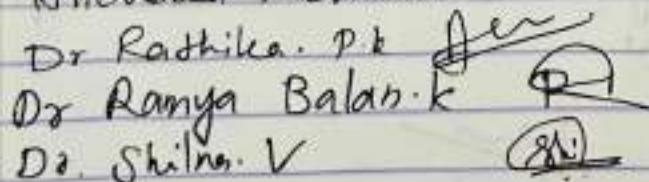 Dr Radhika. P.k
Dr Ramya Balan.k
Dr. Shilna. V